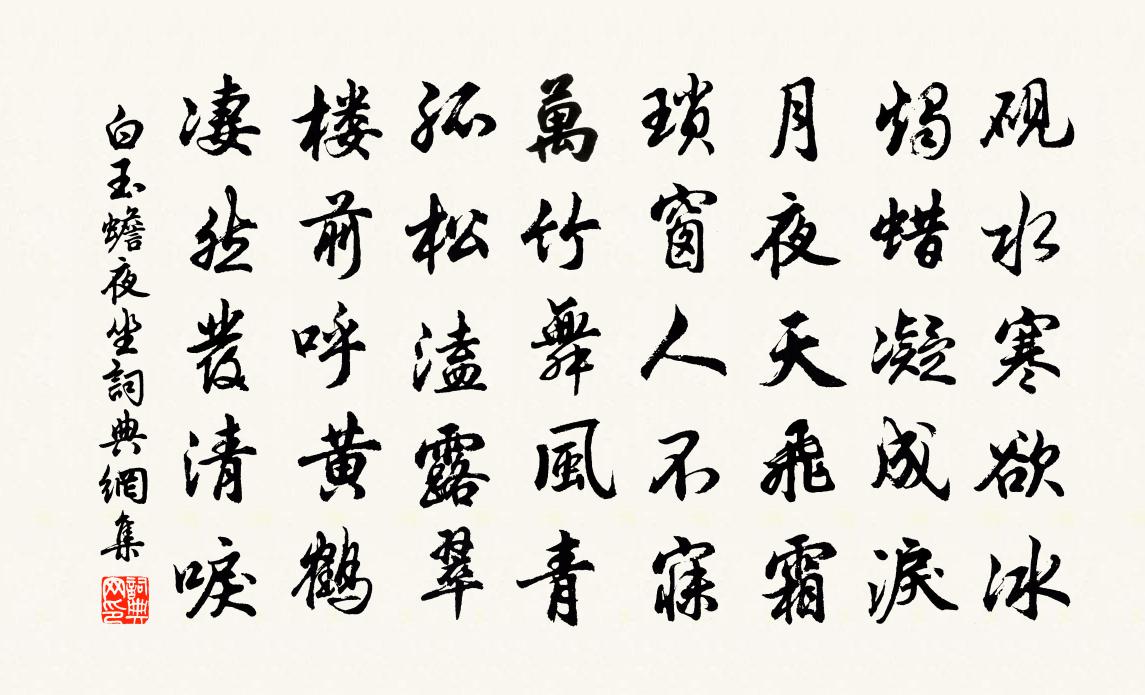 硯水寒欲冰
燭蜡凝成淚
月夜天飛霜
瑣窗人不寐
萬竹舞風青
孤松溘露翠
楼前呼黄鶴
凄然發清唳
白玉蟾夜坐詞典網集
詞典网印